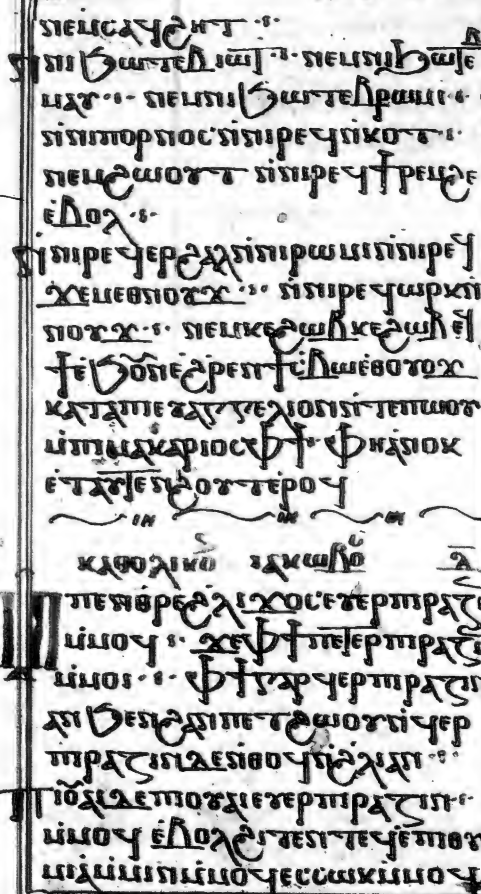 ⲛⲉⲙⲥⲁϥϩⲏⲧ ·:·
ⲛⲓϧⲱⲧⲉⲃⲓⲱⲧ ·:· ⲛⲉⲙⲛⲓϧⲱⲧⲉⲃ
ⲙⲁⲩ ·:· ⲛⲉⲙⲛⲓϧⲱⲧⲉⲃⲣⲱⲙⲓ ·:·
ⲛⲓⲡⲟⲣⲛⲟⲥ ⲛⲓⲣⲉϥⲛⲕⲟⲧ ·:·
ⲛⲉⲙϩⲱⲟⲩⲧ ⲛⲓⲣⲉϥϯⲣⲉⲙϩⲉ
ⲉⲃⲟⲗ ·:·
ⲛⲓⲣⲉϥⲉⲣϩⲁⲗⲛⲛⲓⲣⲱⲙⲓ ⲛⲓⲣⲉϥ
ϫⲉⲙⲉⲑⲛⲟⲩϫ ·:· ⲛⲓⲣⲉϥⲱⲣⲕⲛ
ⲛⲟⲩϫ ·:· ⲛⲉⲙⲕⲉϩⲱⲃⲕⲉϩⲱⲃⲉϥ
ϯⲉϧⲟⲩⲛⲉϩⲣⲉⲛϯⲥⲃⲱⲉⲑⲟⲩⲟϫ
ⲕⲁⲧⲁⲡⲓⲉⲩⲁⲅⲅⲉⲗⲓⲟⲛⲛⲧⲉⲡⲱⲟⲩ
ⲙⲡⲓⲙⲁⲕⲁⲣⲓⲟⲥⲫϯ ·:· ⲫⲏⲁⲛⲟⲕ
ⲉⲧⲁⲩⲧⲉⲛϩⲟⲩⲧⲉⲣⲟϥ
ⲕⲁⲑⲟⲗⲓⲕⲟ ⲓⲁⲕⲱⲃⲟ ⲁ
ⲙⲡⲉⲛⲑⲣⲉϩⲗⲓϫⲟⲥ ⲉⲩⲉⲣⲡⲓⲣⲁⲍⲓⲛ
ⲙⲙⲟϥ ·:· ϫⲉⲫϯⲡⲉⲧⲉⲣⲡⲓⲣⲁⲍⲓⲛ
ⲙⲙⲟⲓ ·:· ⲫϯⲅⲁⲣϥⲉⲣⲡⲓⲣⲁⲍⲓⲛ
ⲁⲛϧⲉⲛϩⲁⲛⲡⲉⲧϩⲱⲟⲩ ⲛϥⲉⲣ
ⲡⲓⲣⲁⲍⲓⲛⲇⲉⲛⲑⲟϥⲛϩⲗⲓⲁⲛ ·:·
ⲡⲓⲟⲩⲁⲓⲇⲉⲡⲓⲟⲩⲁⲓⲉⲩⲉⲣⲡⲓⲣⲁⲍⲓⲛ ·:·
ⲙⲙⲟϥ ⲉⲃⲟⲗϩⲓⲧⲉⲛⲧⲉϥⲉⲡⲓⲑⲩ
ⲙⲓⲁⲙⲙⲓⲛⲙⲙⲟϥⲉⲥⲥⲱⲕⲙⲙⲟϥ